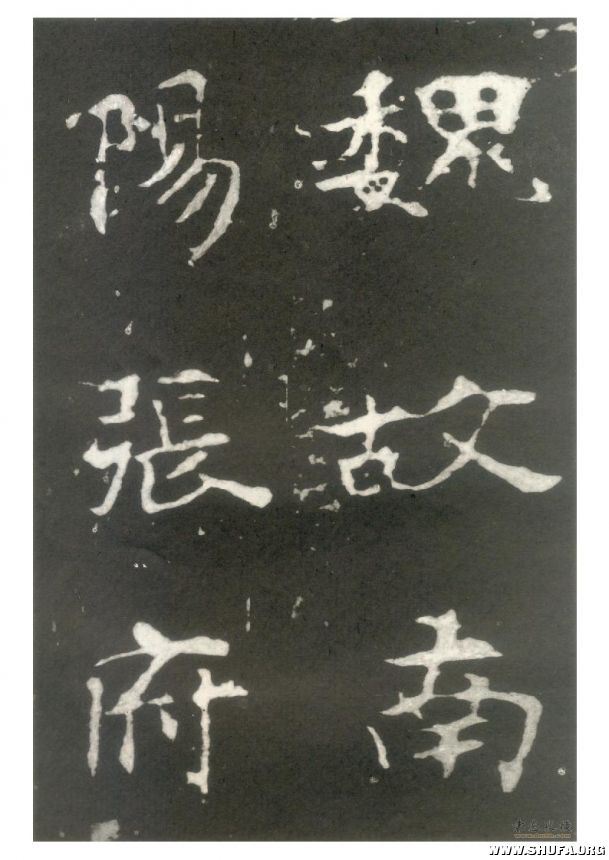 魏故南
陽張府
WWW.SHUFA.ORG